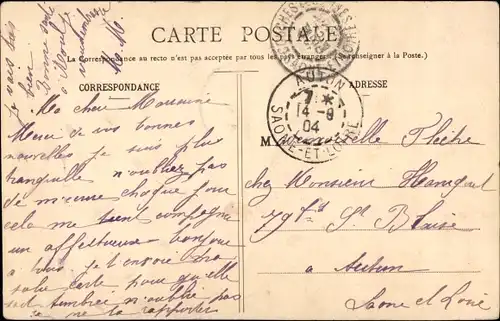 CARTE POSTALE
La Correspondance au recto n'est pas acceptée par tous les pays étrangers (Se renseigner à la Poste.)
CORRESPONDANCE
ADRESSE
Je vais très
bien
Bonne santé
M. M.
Ma chère
Merci de vos bonnes
nouvelles je suis plus
tranquille n'oubliez pas
de m'écrire chaque jour
cela me tient compagnie
un affectueux bonjour
à vous je t'envoie
carte pour qu'elle
soit timbrée n'oublie pas
de me la rapporter
AUTUN
7 *
14 -9
04
SAONE-ET-LOIRE
M
chez Monsieur
St Blaise
à Autun
Saone et Loire